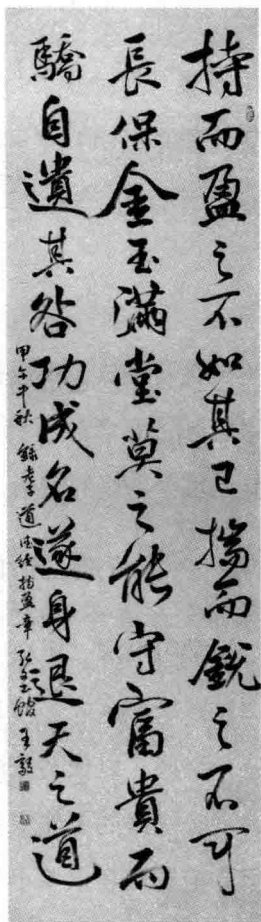 持而盈之不如其已揣而銳之不可
長保金玉滿堂莫之能守富貴而
驕自遺其咎功成名遂身退天之道
甲午中秋錄老子道德經持盈章